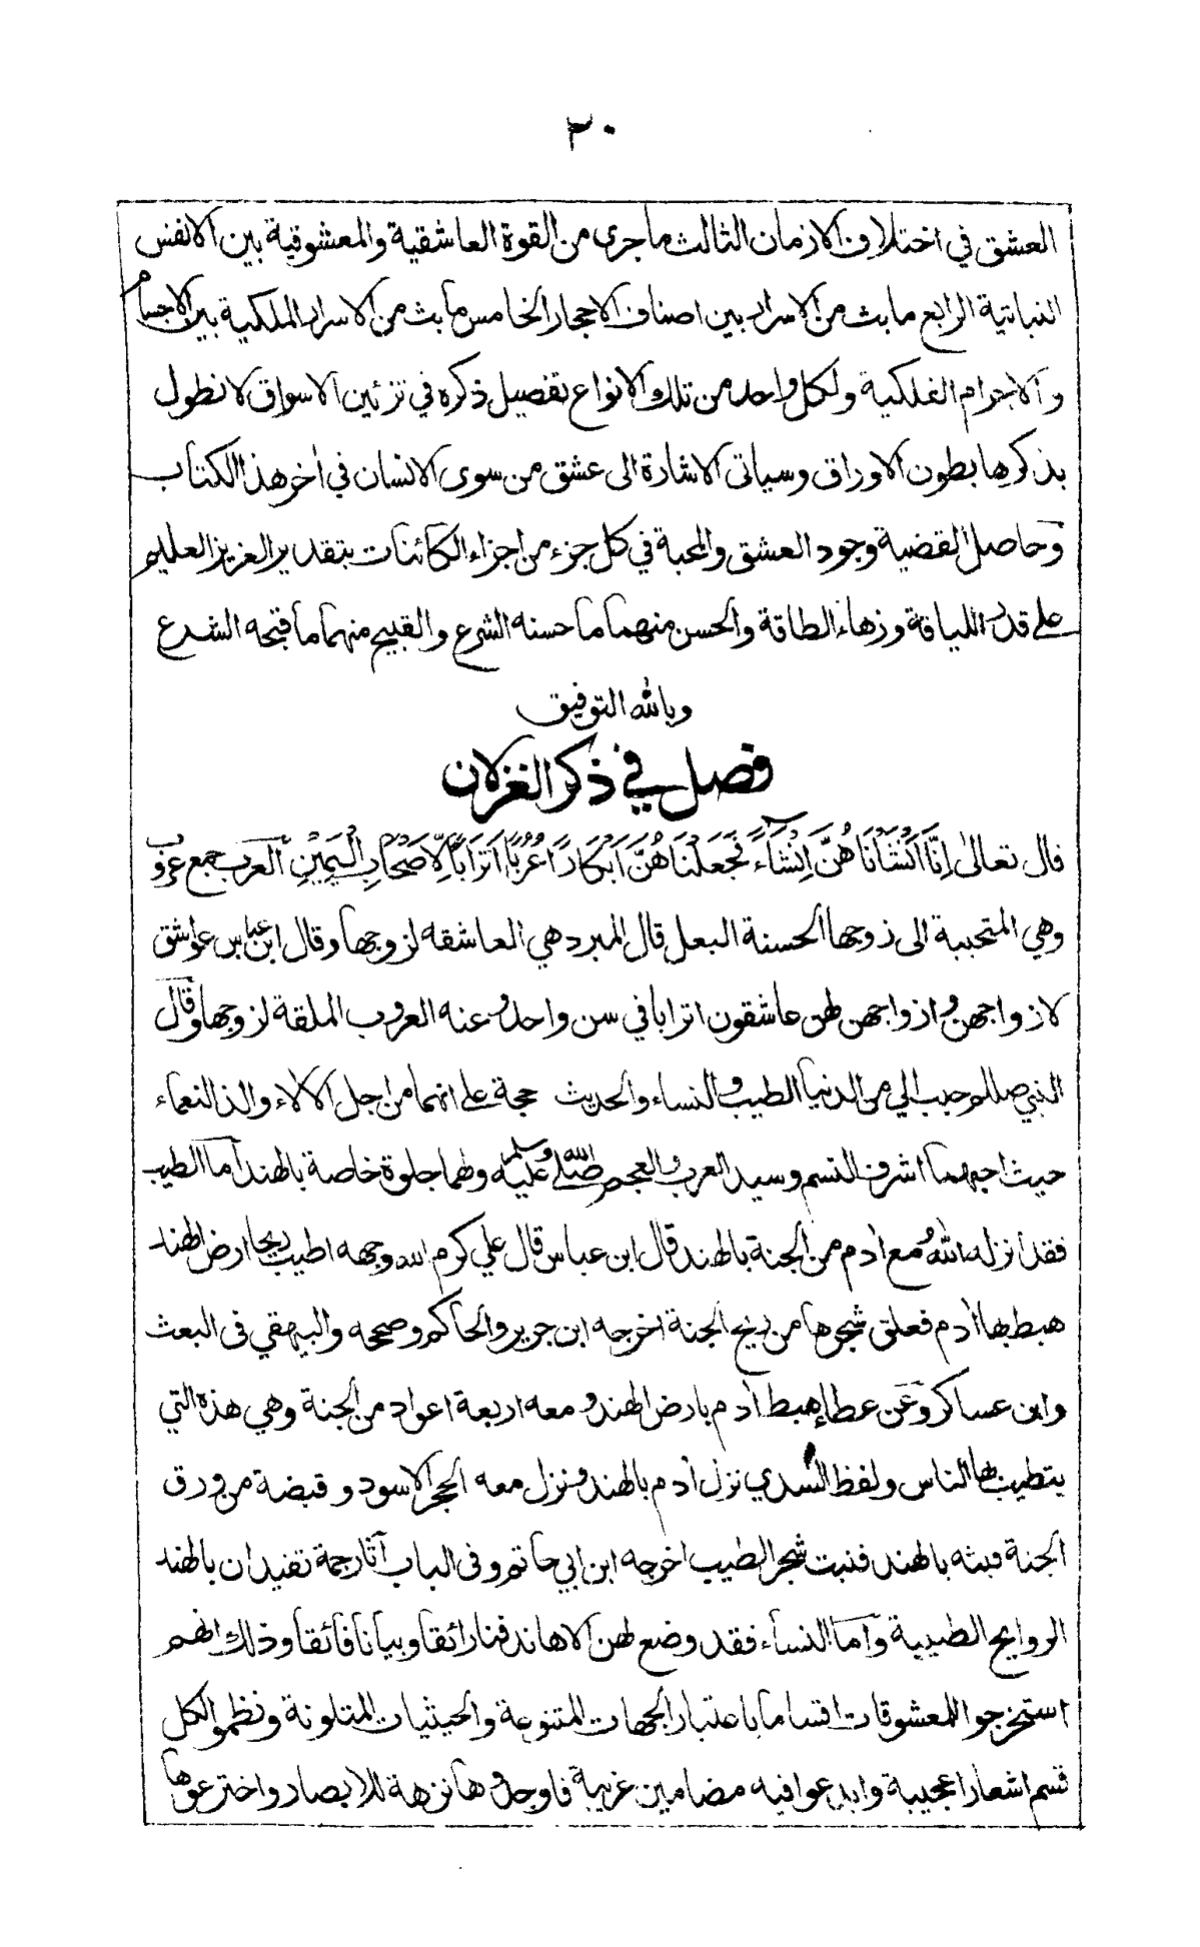 ٣٠
العشق في اختلاف الازمان الثالث ما جرى من القوة العاشقية والمعشوقية بين الانفس
النباتية الرابع ما بث من الاسرار بين اصناف الاحجار الخامس ما بث من الاسرار الملكية بين الاجسام
والاجرام الفلكية ولكل واحد من تلك الانواع تفصيل ذكره في تزئين الاسواق لا نطول
بذكرها بطون الاوراق وسياتى الاشارة الى عشق من سوى الانسان في اخر هذا الكتاب
وحاصل القضية وجود العشق والمحبة في كل جزء من اجزاء الكائنات بتقدير العزيز العليم
على قدر اللياقة وزهاء الطاقة والحسن منهما ما حسنه الشرع والقبيح منهما ما قبحه الشرع
وبالله التوفيق
فصل في ذكر الغزلان
قال تعالى اِنَّا اَنْشَأْنَا هُنَّ اِنْشَاءً فَجَعَلْنَا هُنَّ اَبْكَارًا عُرُبًا اَتْرَابًا لِّاَصْحَابِ الْيَمِيْنِ العرب جمع عروب
وهي المتحببة الى زوجها الحسنة البعل قال المبرد هي العاشقه لزوجها وقال ابن عباس عواشق
لازواجهن وازواجهن لهن عاشقون اترابا في سن واحد وعنه العروب الملقة لزوجها وقال
النبي صللم حبب الي من الدنيا الطيب والنساء والحديث حجة على انهما من اجل الآلاء والذ النعماء
حيث احبهما اشرف النسم وسيد العرب والعجم صلى الله عليه وسلم ولهما جلوة خاصة بالهند اما الطيب
فقد انزله الله مع ادم من الجنة بالهند قال ابن عباس قال علي كرم الله وجهه اطيب ريحا ارض الهند
هبط بها ادم فعلق شجرها من ريح الجنة اخرجه ابن جرير والحاكم وصححه والبيهقي فى البعث
وابن عساكر وعن عطاء هبط ادم بارض الهند ومعه اربعة اعواد من الجنة وهي هذه التي
يتطيب بها الناس ولفظ السدي نزل ادم بالهند ونزل معه الحجر الاسود وقبضة من ورق
الجنة فبثه بالهند فنبت شجر الطيب اخرجه ابن ابي حاتم وفى الباب آثار جمة تفيد ان بالهند
الروايح الطيبية واما النساء فقد وضع لهن الاهاند فنا رائقا وبيانا فائقا وذلك انهم
استخرجوا للمعشوقات اقساما باعتبار الجهات المتنوعة والحيثيات المتلونة ونظموا لكل
قسم اشعارا عجيبة وابدعوا فيه مضامين غريبة فاوجدوها نزهة للابصار واخترعوها